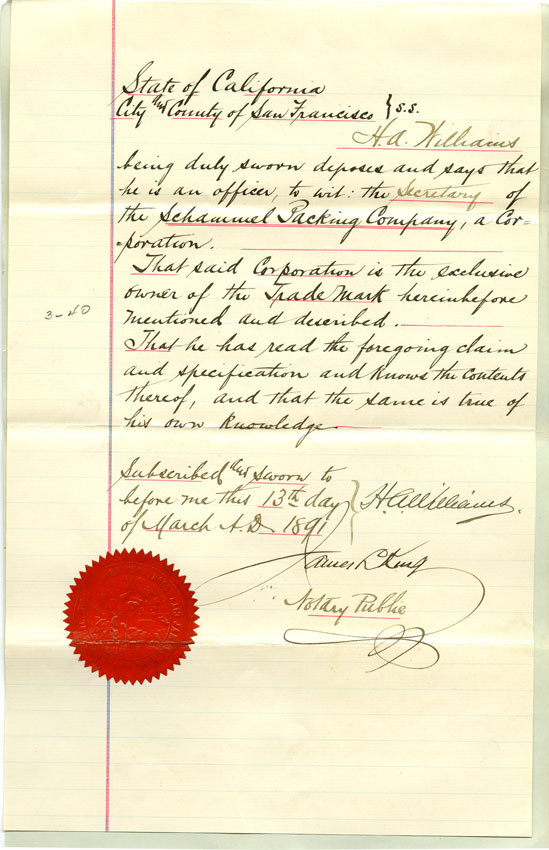 State of California
City and County of San Francisco } s.s.
H. A. Williams
being duly sworn deposes and says that
he is an officer, to wit: the Secretary of
the Schammel Packing Company, a Cor=
=poration.
That said Corporation is the exclusive
owner of the Trade Mark hereinbefore
mentioned and described.
3-40
That he has read the foregoing claim
and specification and knows the contents
thereof, and that the same is true of
his own knowledge
Subscribed and sworn to
before me this 13th day } H. A. Williams.
of March A.D. 1891
James L King
Notary Public